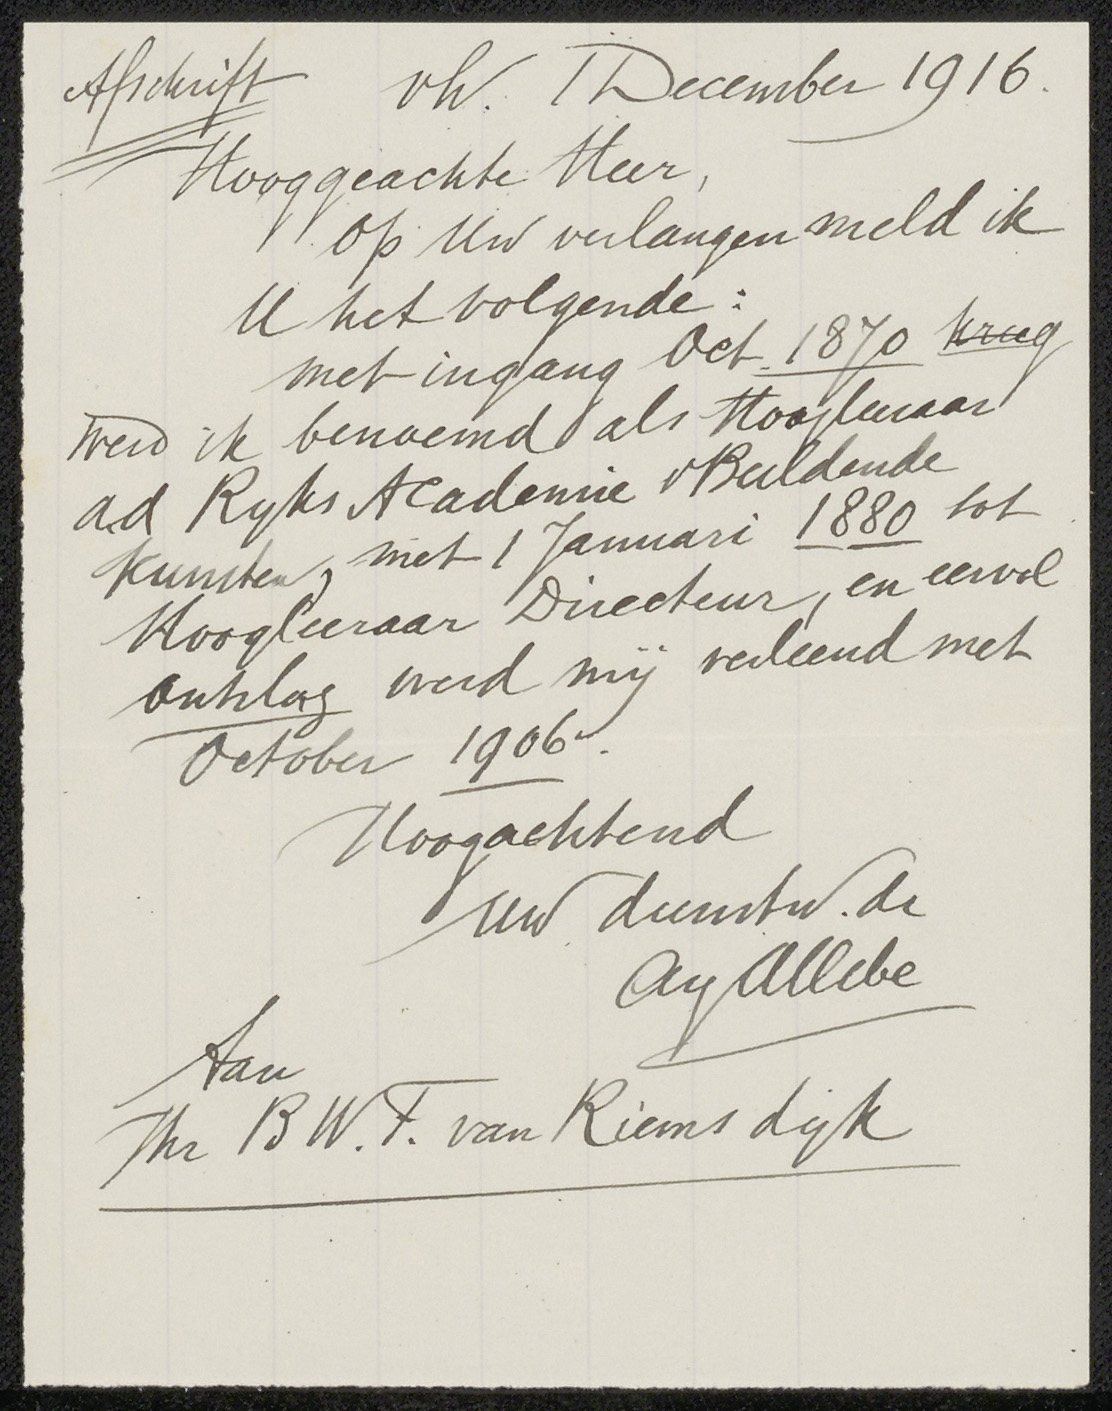 Afschrift vh. 1 December 1916.
Hooggeachte Heer,
Op Uw verlangen meld ik
U het volgende:
met ingang Oct. 1870 kreeg
werd ik benoemd als Hoogleeraar
ad Ryks Academie v Beeldende
Kunsten, met 1 Januari 1880 tot
Hoogleeraar Directeur, en eervol
ontslag werd mij verleend met
October 1906.
Hoogachtend
Uw dienstw. dr
Aug Allebe
Aan
Jhr B W. F. van Riemsdijk